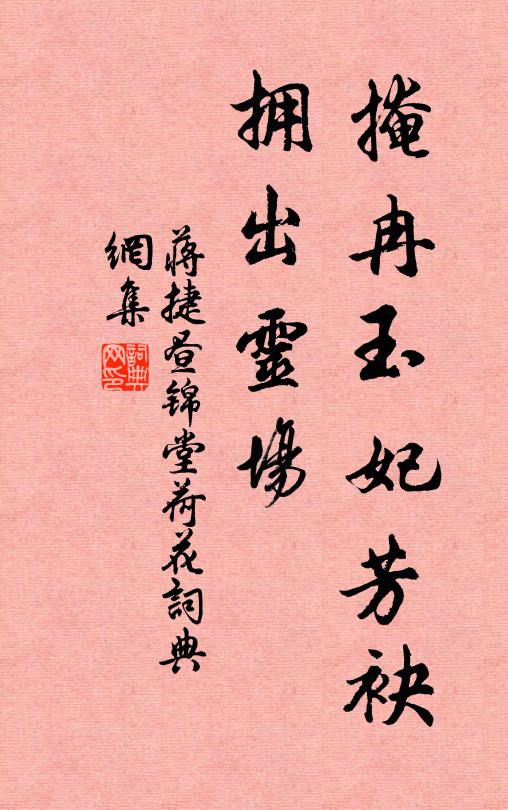 掩冉玉妃芳袂
拥出靈場
蔣捷昼锦堂荷花詞典
網集
詞典网印